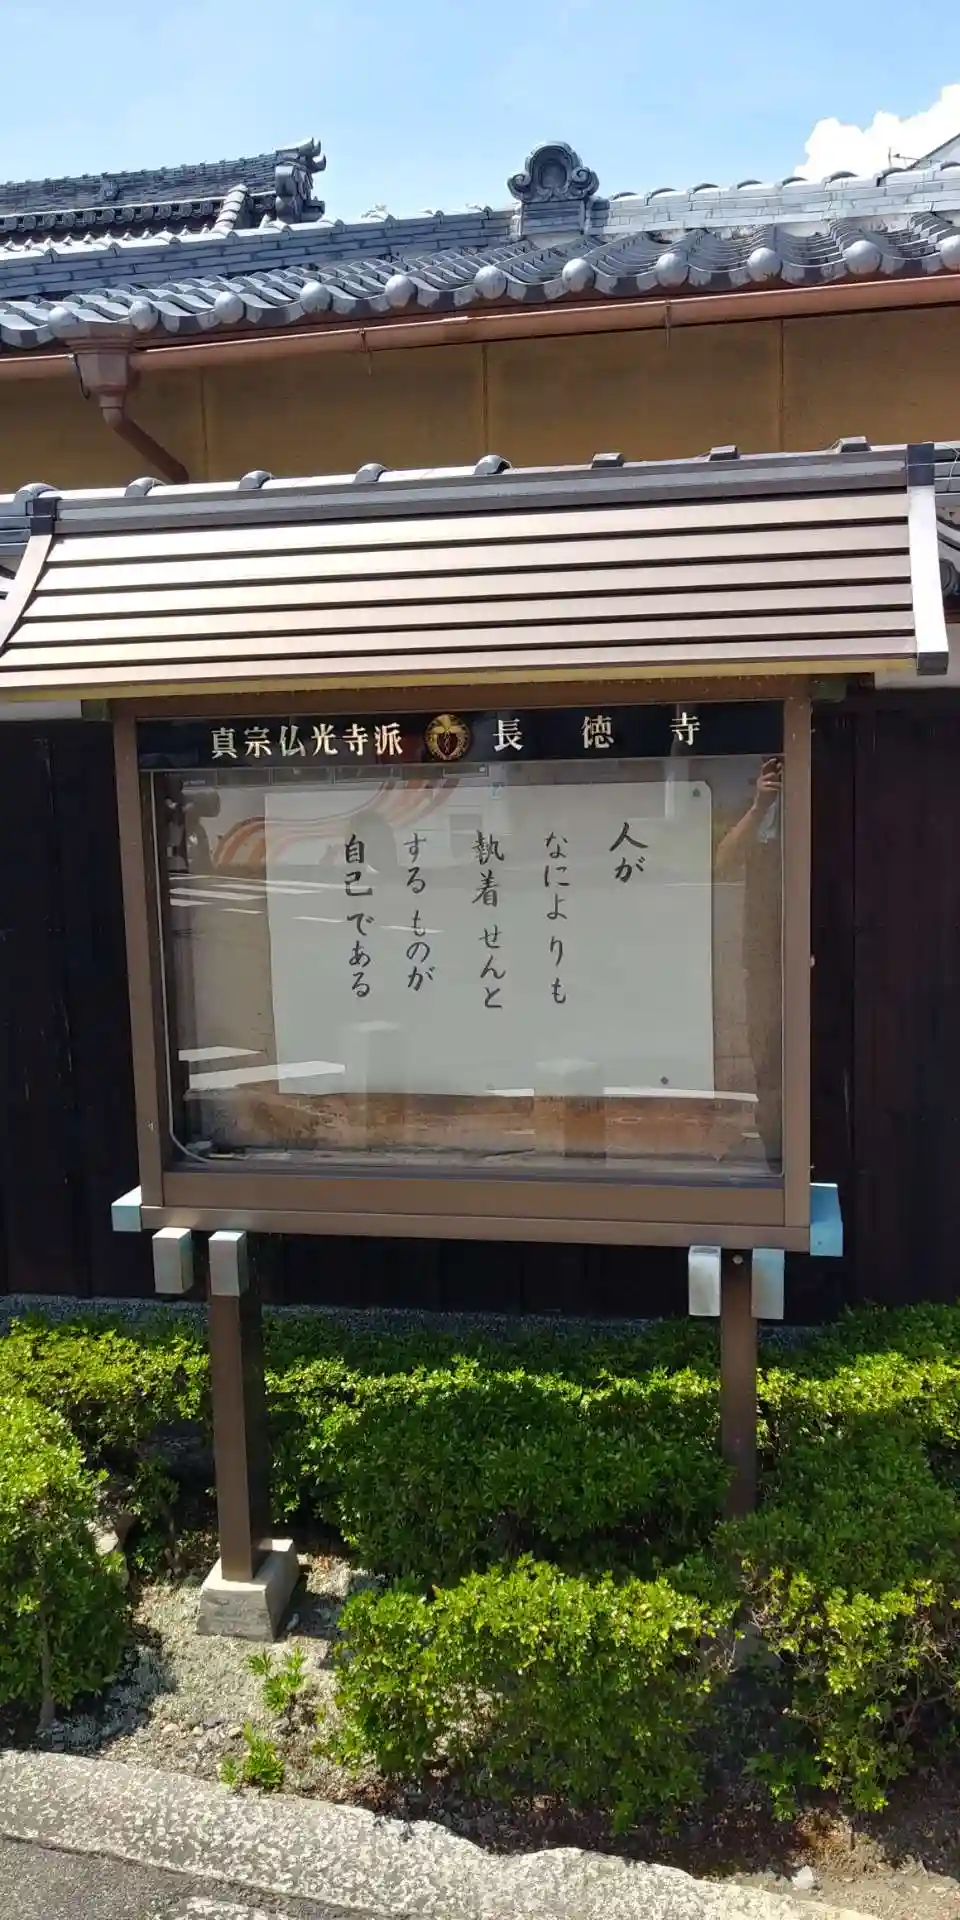 真宗仏光寺派 長徳寺
人が
なによりも
執着せんと
するものが
自己である